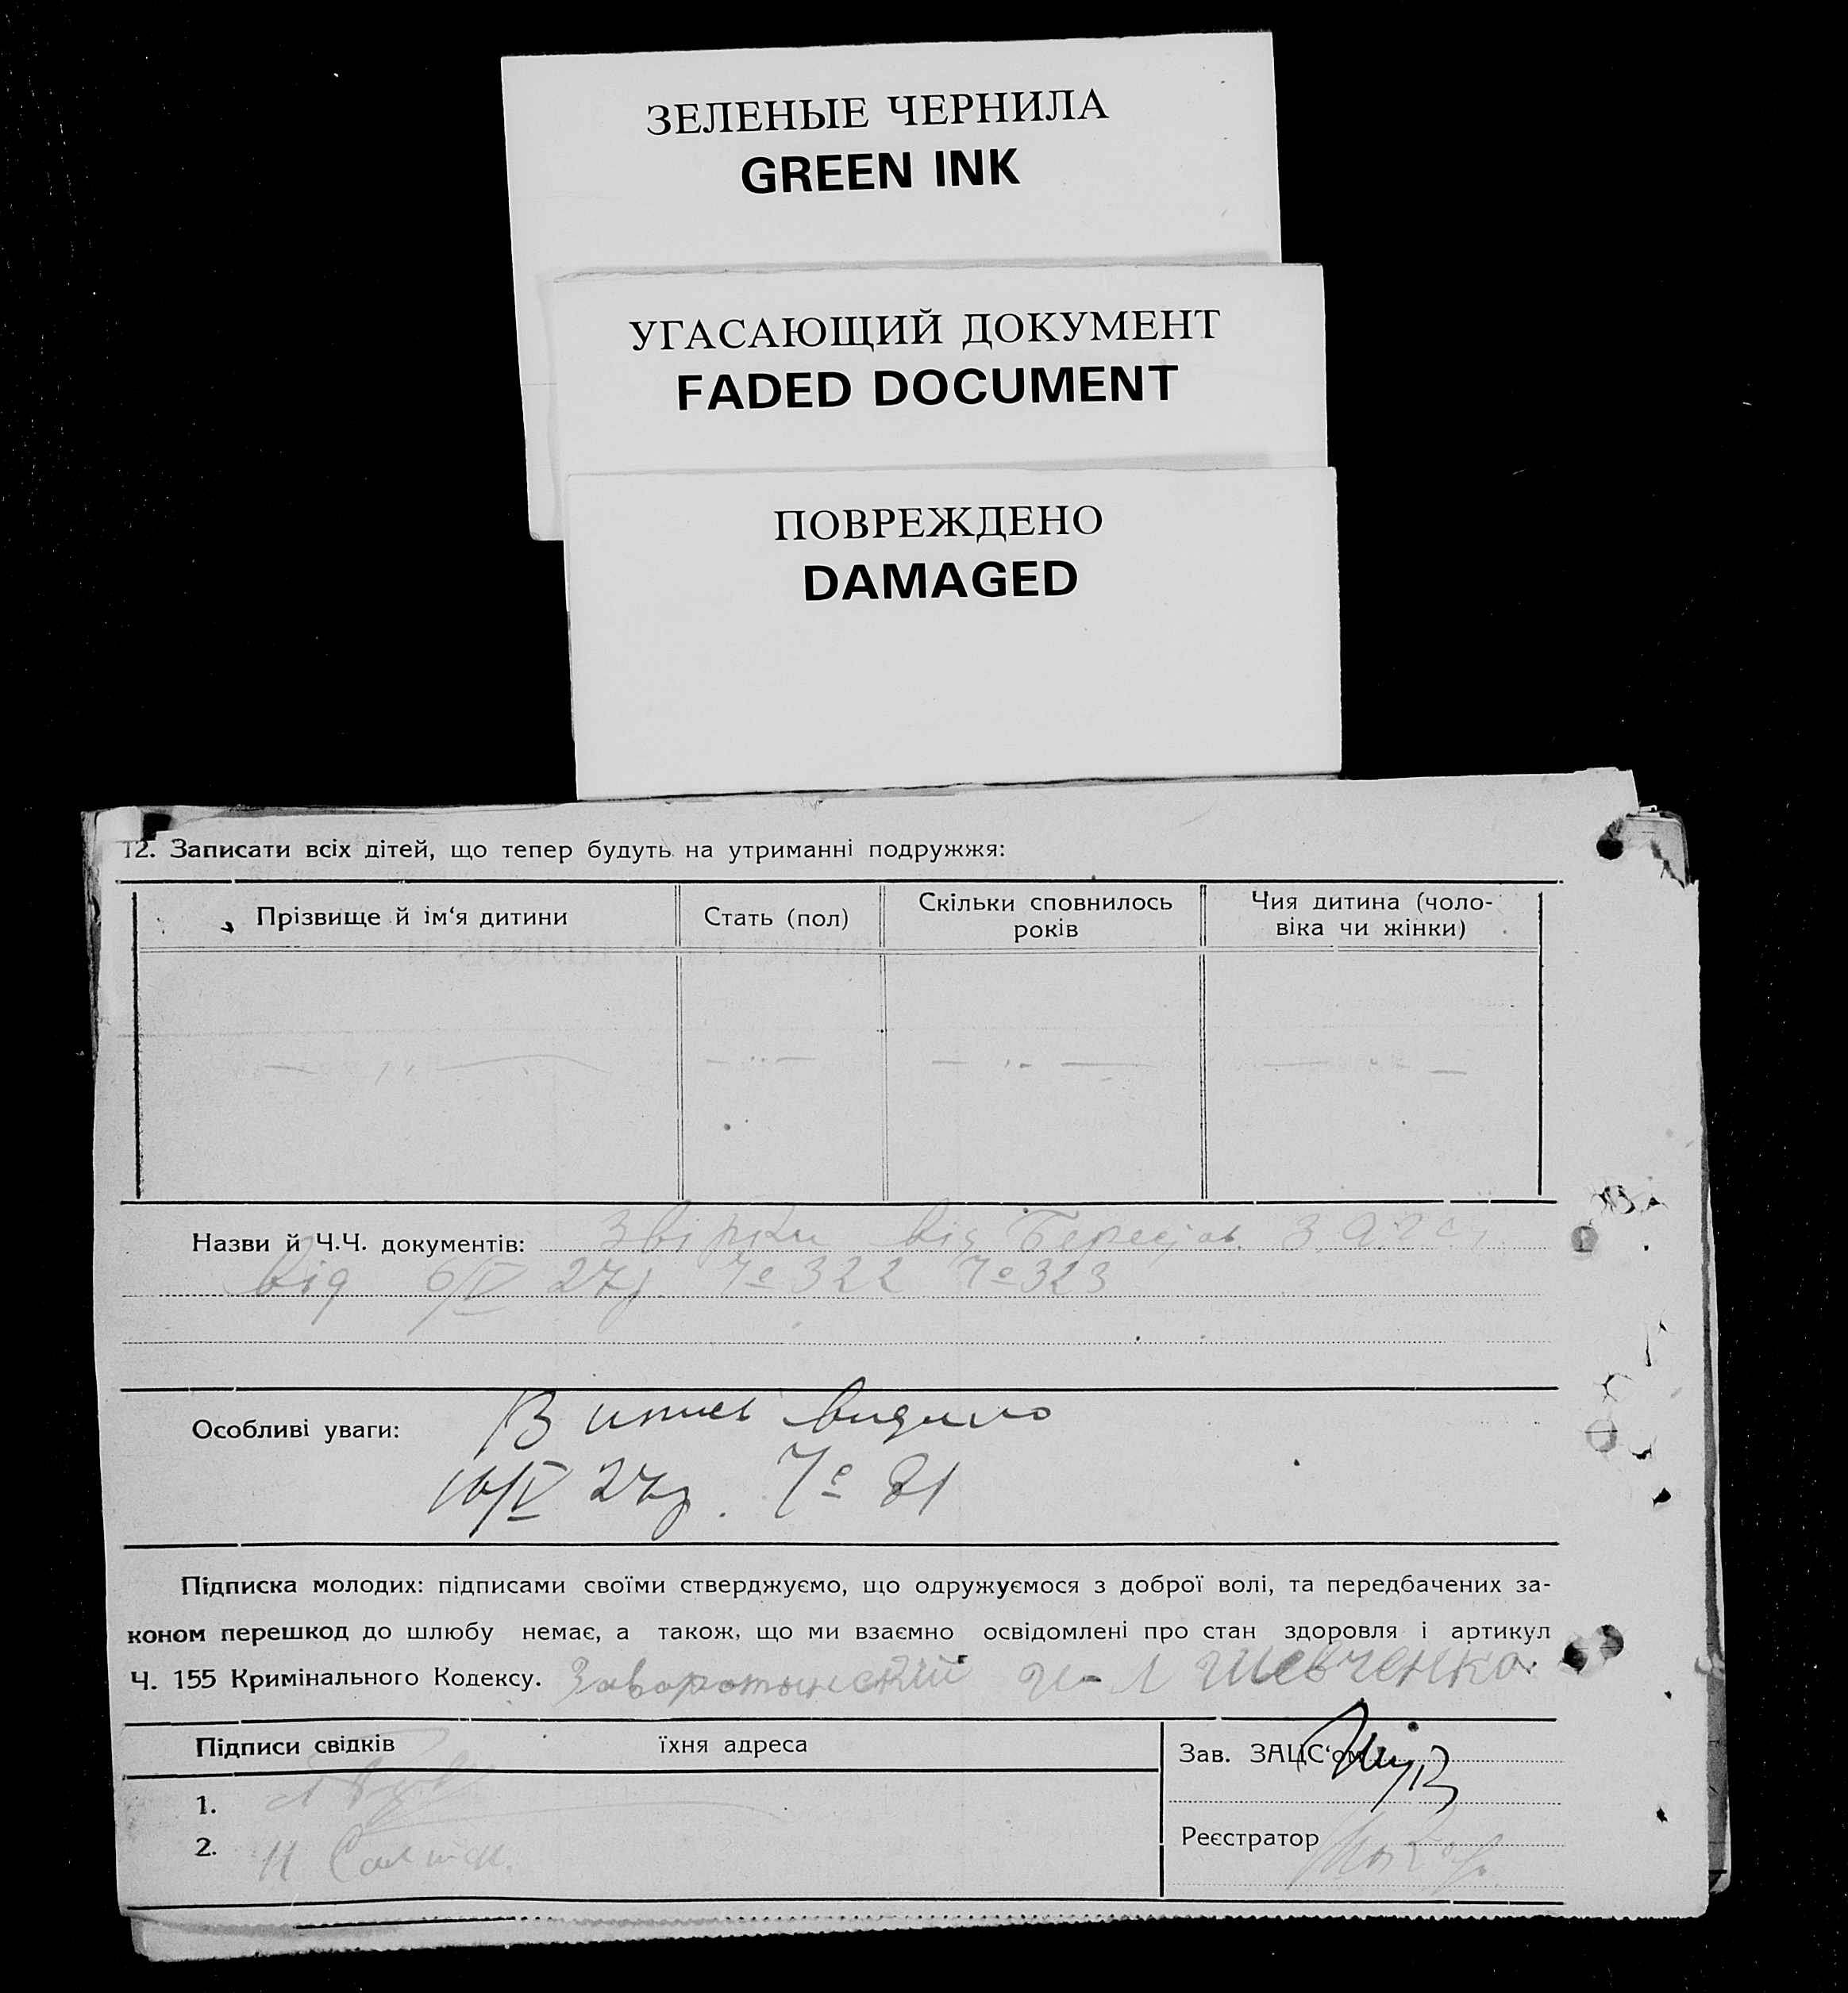 ЗЕЛЕНЫЕ ЧЕРНИЛА
GREEN INK
УГАСАЮЩИЙ ДОКУМЕНТ
FADED DOCUMENT
ПОВРЕЖДЕНО
DAMAGED
12. Записати всіх дітей, що тепер будуть на утриманні подружжя:
Прізвище й ім‘я дитини
Стать (пол)
Скільки сповнилось
років
Чия дитина (чоло-
віка чи жінки)
Назви й Ч.Ч. документів: від
від 6/V 27р № 322 № 323
Особливі уваги: видано
10/V 27р. № 81
Підписка молодих: підписами своїми стверджуємо, що одружуємося з доброї волі, та передбачених за-
коном перешкод до шлюбу немає, а також, що ми взаємно освідомлені про стан здоровля і артикул
Ч. 155 Кримінального Кодексу. Заворотынский Шевченко
Підписи свідків їхня адреса
Зав. ЗАЦС‘ом
1.
2.
Реєстратор